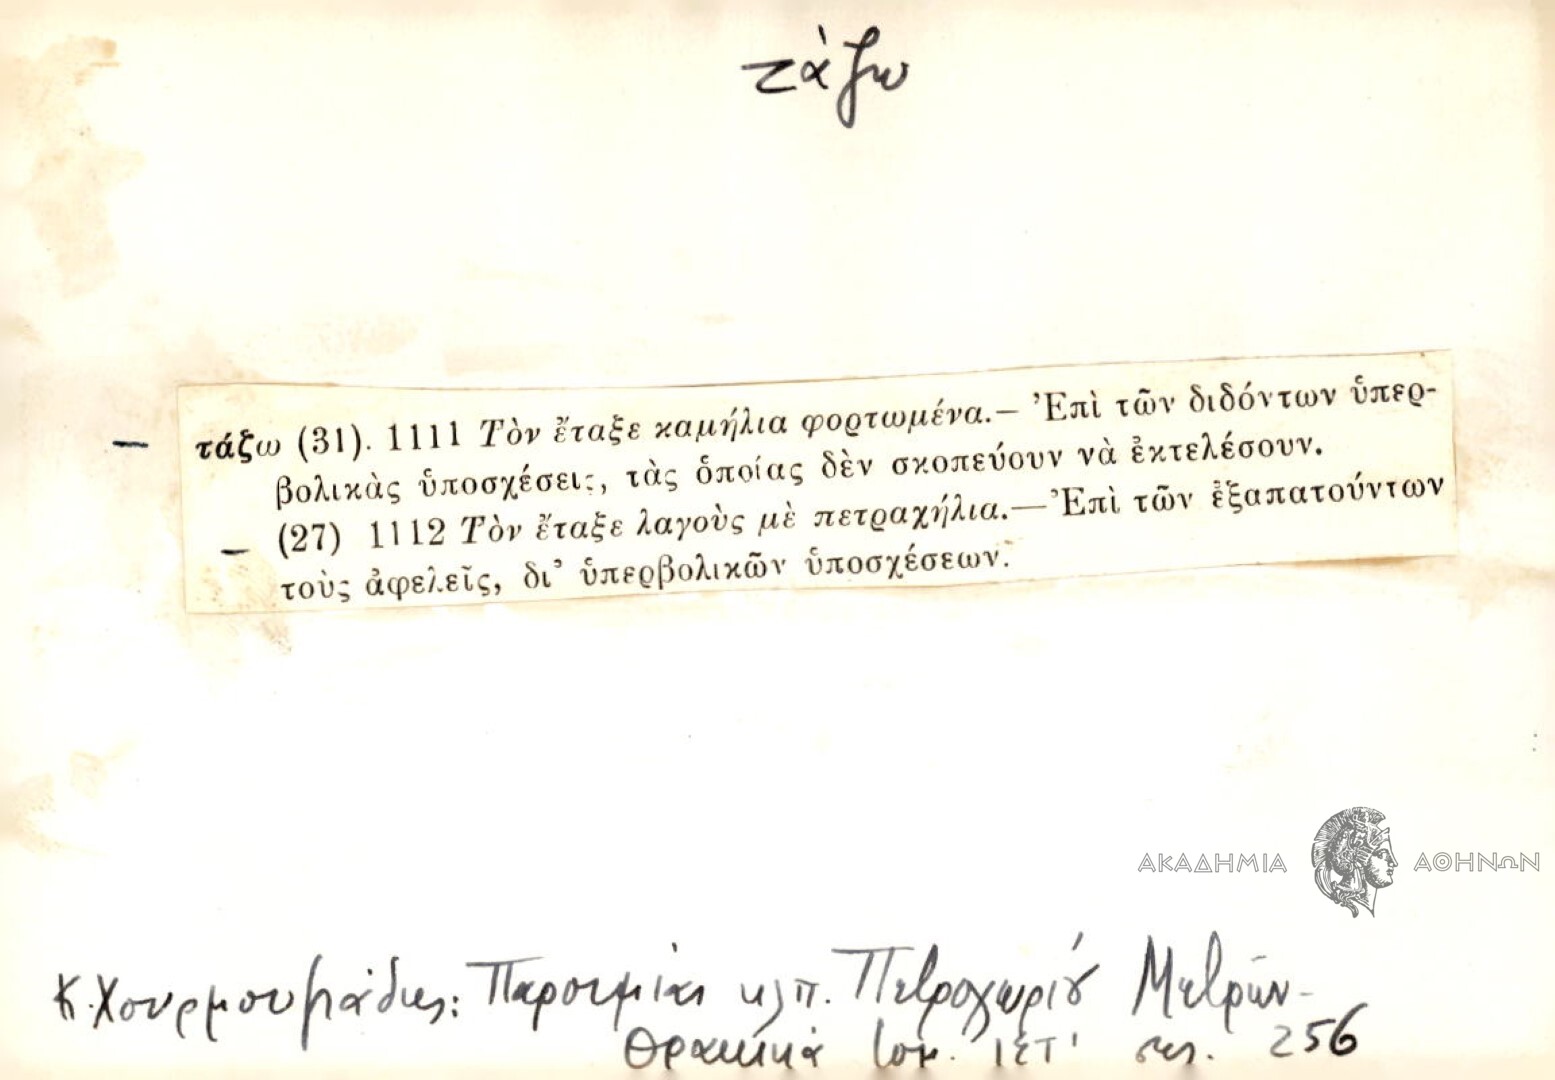 τάζω
— τάζω (31). 1111 Τὸν ἔταξε καμήλια φορτωμένα.— Ἐπὶ τῶν διδόντων ὑπερ-
βολικὰς ὑποσχέσεις, τὰς ὁποίας δὲν σκοπεύουν νὰ ἐκτελέσουν.
— (27) 1112 Τὸν ἔταξε λαγοὺς μὲ πετραχήλια.— Ἐπὶ τῶν ἐξαπατούντων
τοὺς ἀφελεῖς, δι' ὑπερβολικῶν ὑποσχέσεων.
ΑΚΑΔΗΜΙΑ ΑΘΗΝΩΝ
Κ. Χουρμουζιάδης: Παροιμίαι κλπ. Πετροχωρίου Μετρῶν-
Θρακικά τομ. ΙΣΤ' σελ. 256